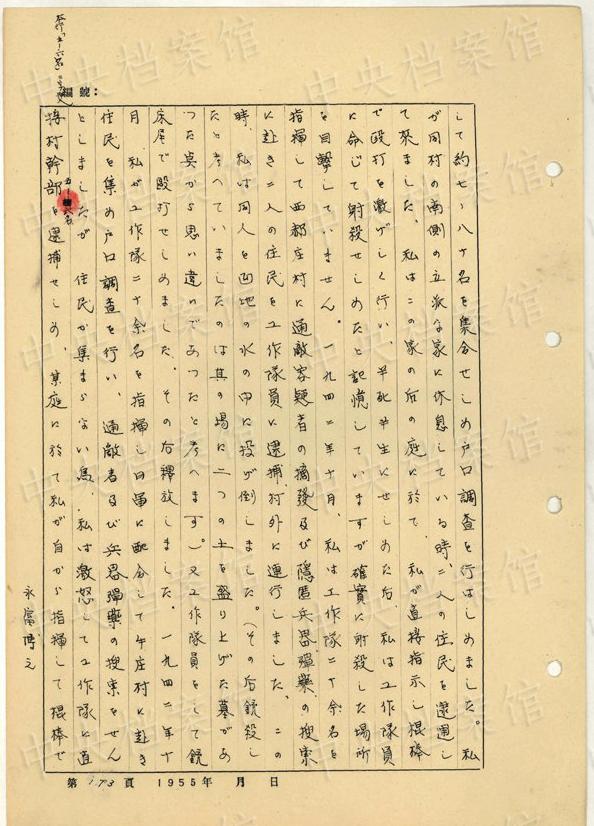 编號：
して約七〜八十名を集合せしめ戸口調査を行はしめました。私
が同村の南側の立派な家に休息している時、二人の住民を逮捕し
て来ました。私はこの家の后の庭に於て、私が直接指示し棍棒
で殴打を激げしく行い、半死半生にせしめた后、私は工作隊員
に命じて射殺せしめたと記憶していますが確實に射殺した場所
を目撃していません。一九四二年十月、私は工作隊二十余名を
指揮して西郝庄村に通敵容疑者の摘發及び隠匿兵器彈藥の搜索
に赴き二人の住民を工作隊員に逮捕、村外に連行しました、この
時、私は同人を凹地の水の中に投げ倒しました。（その后銃殺し
たと考へていましたのは其の場に二つの土を盛り上げた墓があ
つた莫から思い違いであつたと考へます）又工作隊員をして銃
床尾で殴打せしめました。その后釋放しました。一九四二年十
月 私が工作隊二十余名を指揮し日軍に配合して午庄村に赴き
住民を集め戸口調査を行い、通敵者及び兵器彈藥の搜索をせん
としましたが 住民が集まらない為、私は激怒して工作隊に直
接村幹部を逮捕せしめ、某庭に於て私が自から指揮して棍棒で
永富博之
第 173 頁 1955年 月 日
中央档案馆